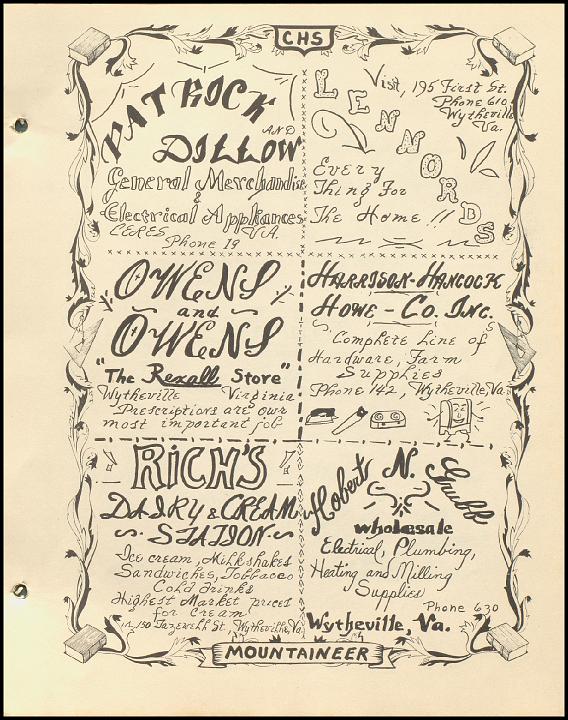 CHS
PATRICK
AND
DILLOW
General Merchandise
&
Electrical Appliances
CERES VA.
Phone 19
LENNORDS
Visit, 195 First St.
Phone 610
Wytheville
Va.
Every
Thing For
The Home !!
OWENS
and
OWENS
"The Rexall Store"
Wytheville Virginia
Prescriptions are our
most important job
HARRISON-HANCOCK
HOWE-CO. INC.
Complete Line of
Hardware, Farm
Supplies
Phone 142, Wytheville, Va.
RICH'S
DAIRY & CREAM
STATION
Ice cream, Milkshakes
Sandwiches, Tobbacco
Cold drinks
Highest Market prices
for Cream
150 Tazewell St. Wytheville, Va.
Hobert N. Grubb
wholesale
Electrical, Plumbing,
Heating and Milling
Supplies
Phone 630
Wytheville, Va.
MOUNTAINEER